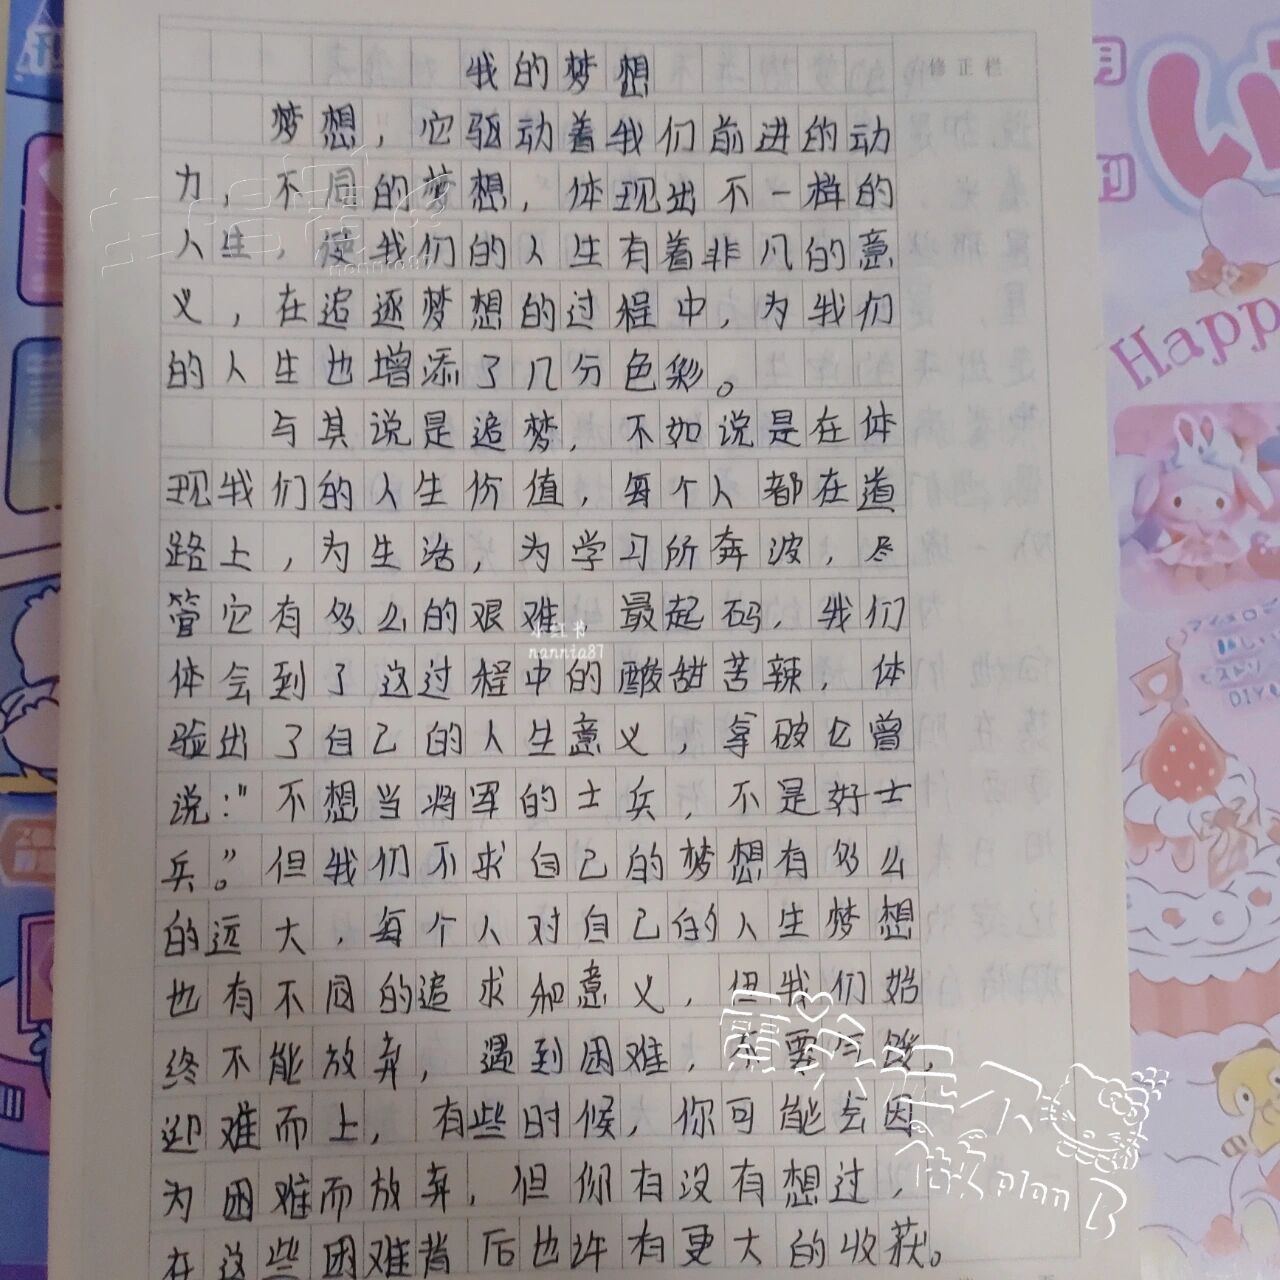 我的梦想
修正栏
梦想，它驱动着我们前进的动
力，不同的梦想，体现出不一样的
人生，使我们的人生有着非凡的意
义，在追逐梦想的过程中，为我们
的人生也增添了几分色彩。
与其说是追梦，不如说是在体
现我们的人生价值，每个人都在道
路上，为生活，为学习所奔波，尽
管它有多么的艰难 最起码，我们
体会到了这过程中的酸甜苦辣，体
验出了自己的人生意义，拿破仑曾
说："不想当将军的士兵，不是好士
兵。"但我们不求自己的梦想有多么
的远大，每个人对自己的人生梦想
也有不同的追求和意义，但我们始
终不能放弃，遇到困难，不要气馁，
迎难而上，有些时候，你可能会因
为困难而放弃，但你有没有想过，
在这些困难背后也许有更大的收获。
小红书
nannia87
plan B
Happ
月
刊
DIY